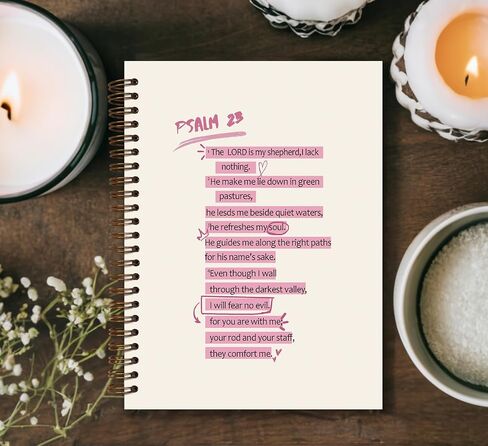 PSALM 23
'The LORD is my shepherd,I lack
nothing.
'He make me lie down in green
pastures,
he lesds me beside quiet waters,
'he refreshes my soul.
He guides me along the right paths
for his name's sake.
'Even though I wall
through the darkest valley,
I will fear no evil,
for you are with me;
your rod and your staff,
they comfort me.